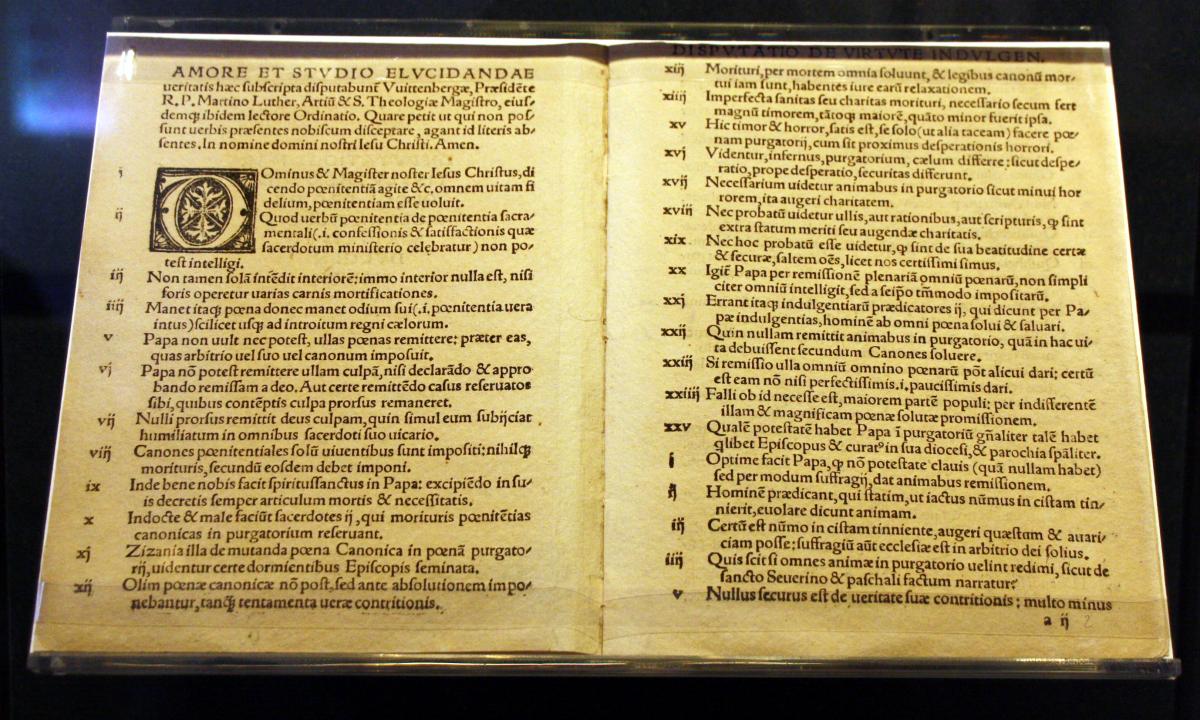 AMORE ET STVDIO ELVCIDANDAE
ueritatis hæc subscripta disputabunt Vuittenbergæ, Præsidẽte
R. P. Martino Luther, Artiũ & S. Theologiæ Magistro, eius/
demq; ibidem lectore Ordinatio. Quare petit ut qui non pos/
sunt uerbis præsentes nobiscum disceptare, agant id literis ab/
sentes. In nomine domini nostri Iesu Christi. Amen.
i DOminus & Magister noster Iesus Christus, di
cendo pœnitentiã agite &c, omnem uitam fi
delium, pœnitentiam esse uoluit.
ij Quod uerbũ pœnitentia de pœnitentia sacra/
mentali (.i. confessionis & satisfactionis quæ
sacerdotum ministerio celebratur) non po/
test intelligi.
iij Non tamen solã intẽdit interiorẽ: immo interior nulla est, nisi
foris operetur uarias carnis mortificationes.
iiij Manet itaq; pœna donec manet odium sui (.i. pœnitentia uera
intus) scilicet usq; ad introitum regni cælorum.
v Papa non uult nec potest, ullas pœnas remittere: præter eas,
quas arbitrio uel suo uel canonum imposuit.
vj Papa nõ potest remittere ullam culpã, nisi declarãdo & appro
bando remissam a deo. Aut certe remittẽdo casus reseruatos
sibi, quibus contẽptis culpa prorsus remaneret.
vij Nulli prorsus remittit deus culpam, quin simul eum subijciat
humiliatum in omnibus sacerdoti suo uicario.
viij Canones pœnitentiales solũ uiuentibus sunt impositi: nihilq;
morituris, secundũ eosdem debet imponi.
ix Inde bene nobis facit spiritussanctus in Papa: excipiẽdo in su/
is decretis semper articulum mortis & necessitatis.
x Indocte & male faciũt sacerdotes ij, qui morituris pœnitẽtias
canonicas in purgatorium reseruant.
xj Zizania illa de mutanda pœna Canonica in pœnã purgato/
rij, uidentur certe dormientibus Episcopis seminata.
xij Olim pœnæ canonicæ nõ post, sed ante absolutionem impo/
nebantur, tanq̃ tentamenta ueræ contritionis.
DISPVTATIO DE VIRTVTE INDVLGEN.
xiij Morituri, per mortem omnia soluunt, & legibus canonũ mor/
tui iam sunt, habentes iure earũ relaxationem.
xiiij Imperfecta sanitas seu charitas morituri, necessario secum fert
magnũ timorem, tãtoq; maiorẽ, quãto minor fuerit ipsa.
xv Hic timor & horror, satis est, se solo (ut alia taceam) facere pœ/
nam purgatorij, cum sit proximus desperationis horrori.
xvj Videntur, infernus, purgatorium, cælum differre: sicut despe/
ratio, prope desperatio, securitas differunt.
xvij Necessarium uidetur animabus in purgatorio sicut minui hor
rorem, ita augeri charitatem.
xviij Nec probatũ uidetur ullis, aut rationibus, aut scripturis, ꝙ sint
extra statum meriti seu augendæ charitatis.
xix Nec hoc probatũ esse uidetur, ꝙ sint de sua beatitudine certæ
& securæ, saltem oẽs, licet nos certissimi simus.
xx Igit̃ Papa per remissionẽ plenariã omniũ pœnarũ, non simpli
citer omniũ intelligit, sed a seipo tm̃modo impositarũ.
xxj Errant itaq; indulgentiarũ prædicatores ij, qui dicunt per Pa/
pæ indulgentias, hominẽ ab omni pœna solui & saluari.
xxij Quin nullam remittit animabus in purgatorio, quã in hac ui/
ta debuissent secundum Canones soluere.
xxiij Si remissio ulla omniũ omnino pœnarũ põt alicui dari; certũ
est eam nõ nisi perfectissimis .i. paucissimis dari.
xxiiij Falli ob id necesse est, maiorem partẽ populi: per indifferentẽ
illam & magnificam pœnæ solutæ promissionem.
xxv Qualẽ potestatẽ habet Papa ĩ purgatoriũ gñaliter talẽ habet
q̃libet Episcopus & curatꝰ in sua diocesi, & parochia spãliter.
i Optime facit Papa, ꝙ nõ potestate clauis (quã nullam habet)
sed per modum suffragij, dat animabus remissionem.
ij Hominẽ prædicant, qui statim, ut iactus nũmus in cistam tin/
nierit, euolare dicunt animam.
iij Certũ est nũmo in cistam tinniente, augeri quæstum & auari/
ciam posse: suffragiũ aũt ecclesiæ est in arbitrio dei solius.
iiij Quis scit si omnes animæ in purgatorio uelint redimi, sicut de
sancto Seuerino & paschali factum narratur?
v Nullus securus est de ueritate suæ contritionis; multo minus
a ij 2